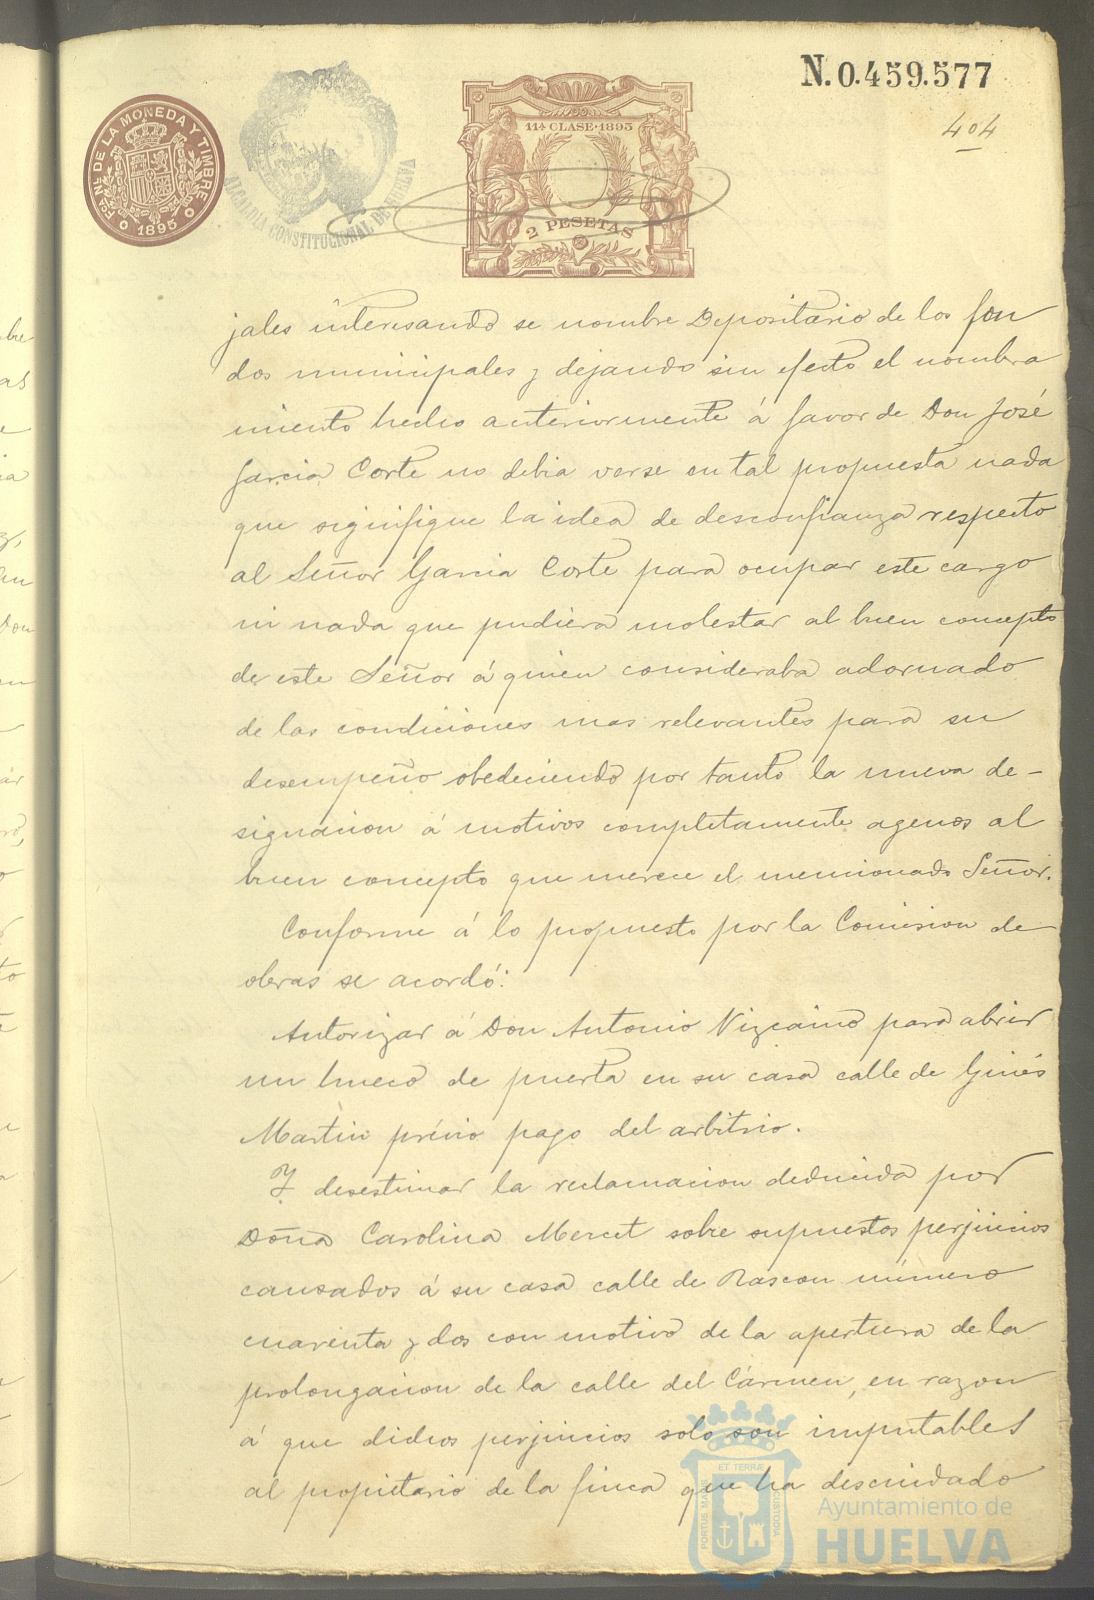 N.0.459.577
404
Fca. Nl. DE LA MONEDA Y TIMBRE
1895
ALCALDIA CONSTITUCIONAL DE HUELVA
11ª CLASE·1895
2 PESETAS
jales interesando se nombre Depositario de los fon
dos municipales y dejando sin efecto el nombra
miento hecho anteriormente á favor de Don José
Garcia Corte no debia verse en tal propuesta nada
que signifique la idea de desconfianza respecto
al Señor Garcia Corte para ocupar este cargo
ni nada que pudiera molestar al buen concepto
de este Señor á quien consideraba adornado
de las condiciones mas relevantes para su
desempeño obedeciendo por tanto la nueva de-
signacion á motivos completamente agenos al
buen concepto que merece el mencionado Señor.
Conforme á lo propuesto por la Comision de
obras se acordó:
Autorizar á Don Antonio Vizcaino para abrir
un hueco de puerta en su casa calle de Ginés
Martin prévio pago del arbitrio.
Y desestimar la reclamacion deducida por
Doña Carolina Mercet sobre supuestos perjuicios
causados á su casa calle de Rascon número
cuarenta y dos con motivo de la apertura de la
prolongacion de la calle del Cármen, en razon
á que dichos perjuicios solo son imputables
al propietario de la finca que ha descuidado
PORTUS MARIS ET TERRÆ CUSTODIA
Ayuntamiento de
HUELVA